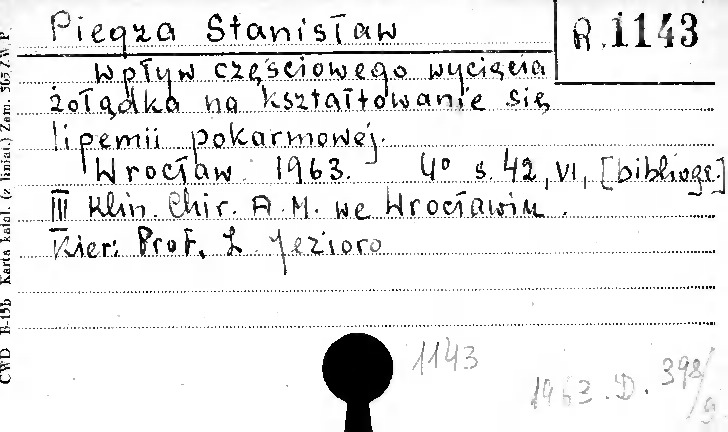 Pieqza Stanisław
R. 1143
Wpływ częściowego wycięcia
żołądka na kształtowanie się
lipemii pokarmowej.
Wrocław 1963. 4° s. 42, VI, [bibliogr.]
III Klin. Chir. A.M. we Wrocławiu.
Kier: Prof. Z. Jezioro
1143
1963. D. 398/9
CWD B-15b Karta katal. (z lniai.) Zam.